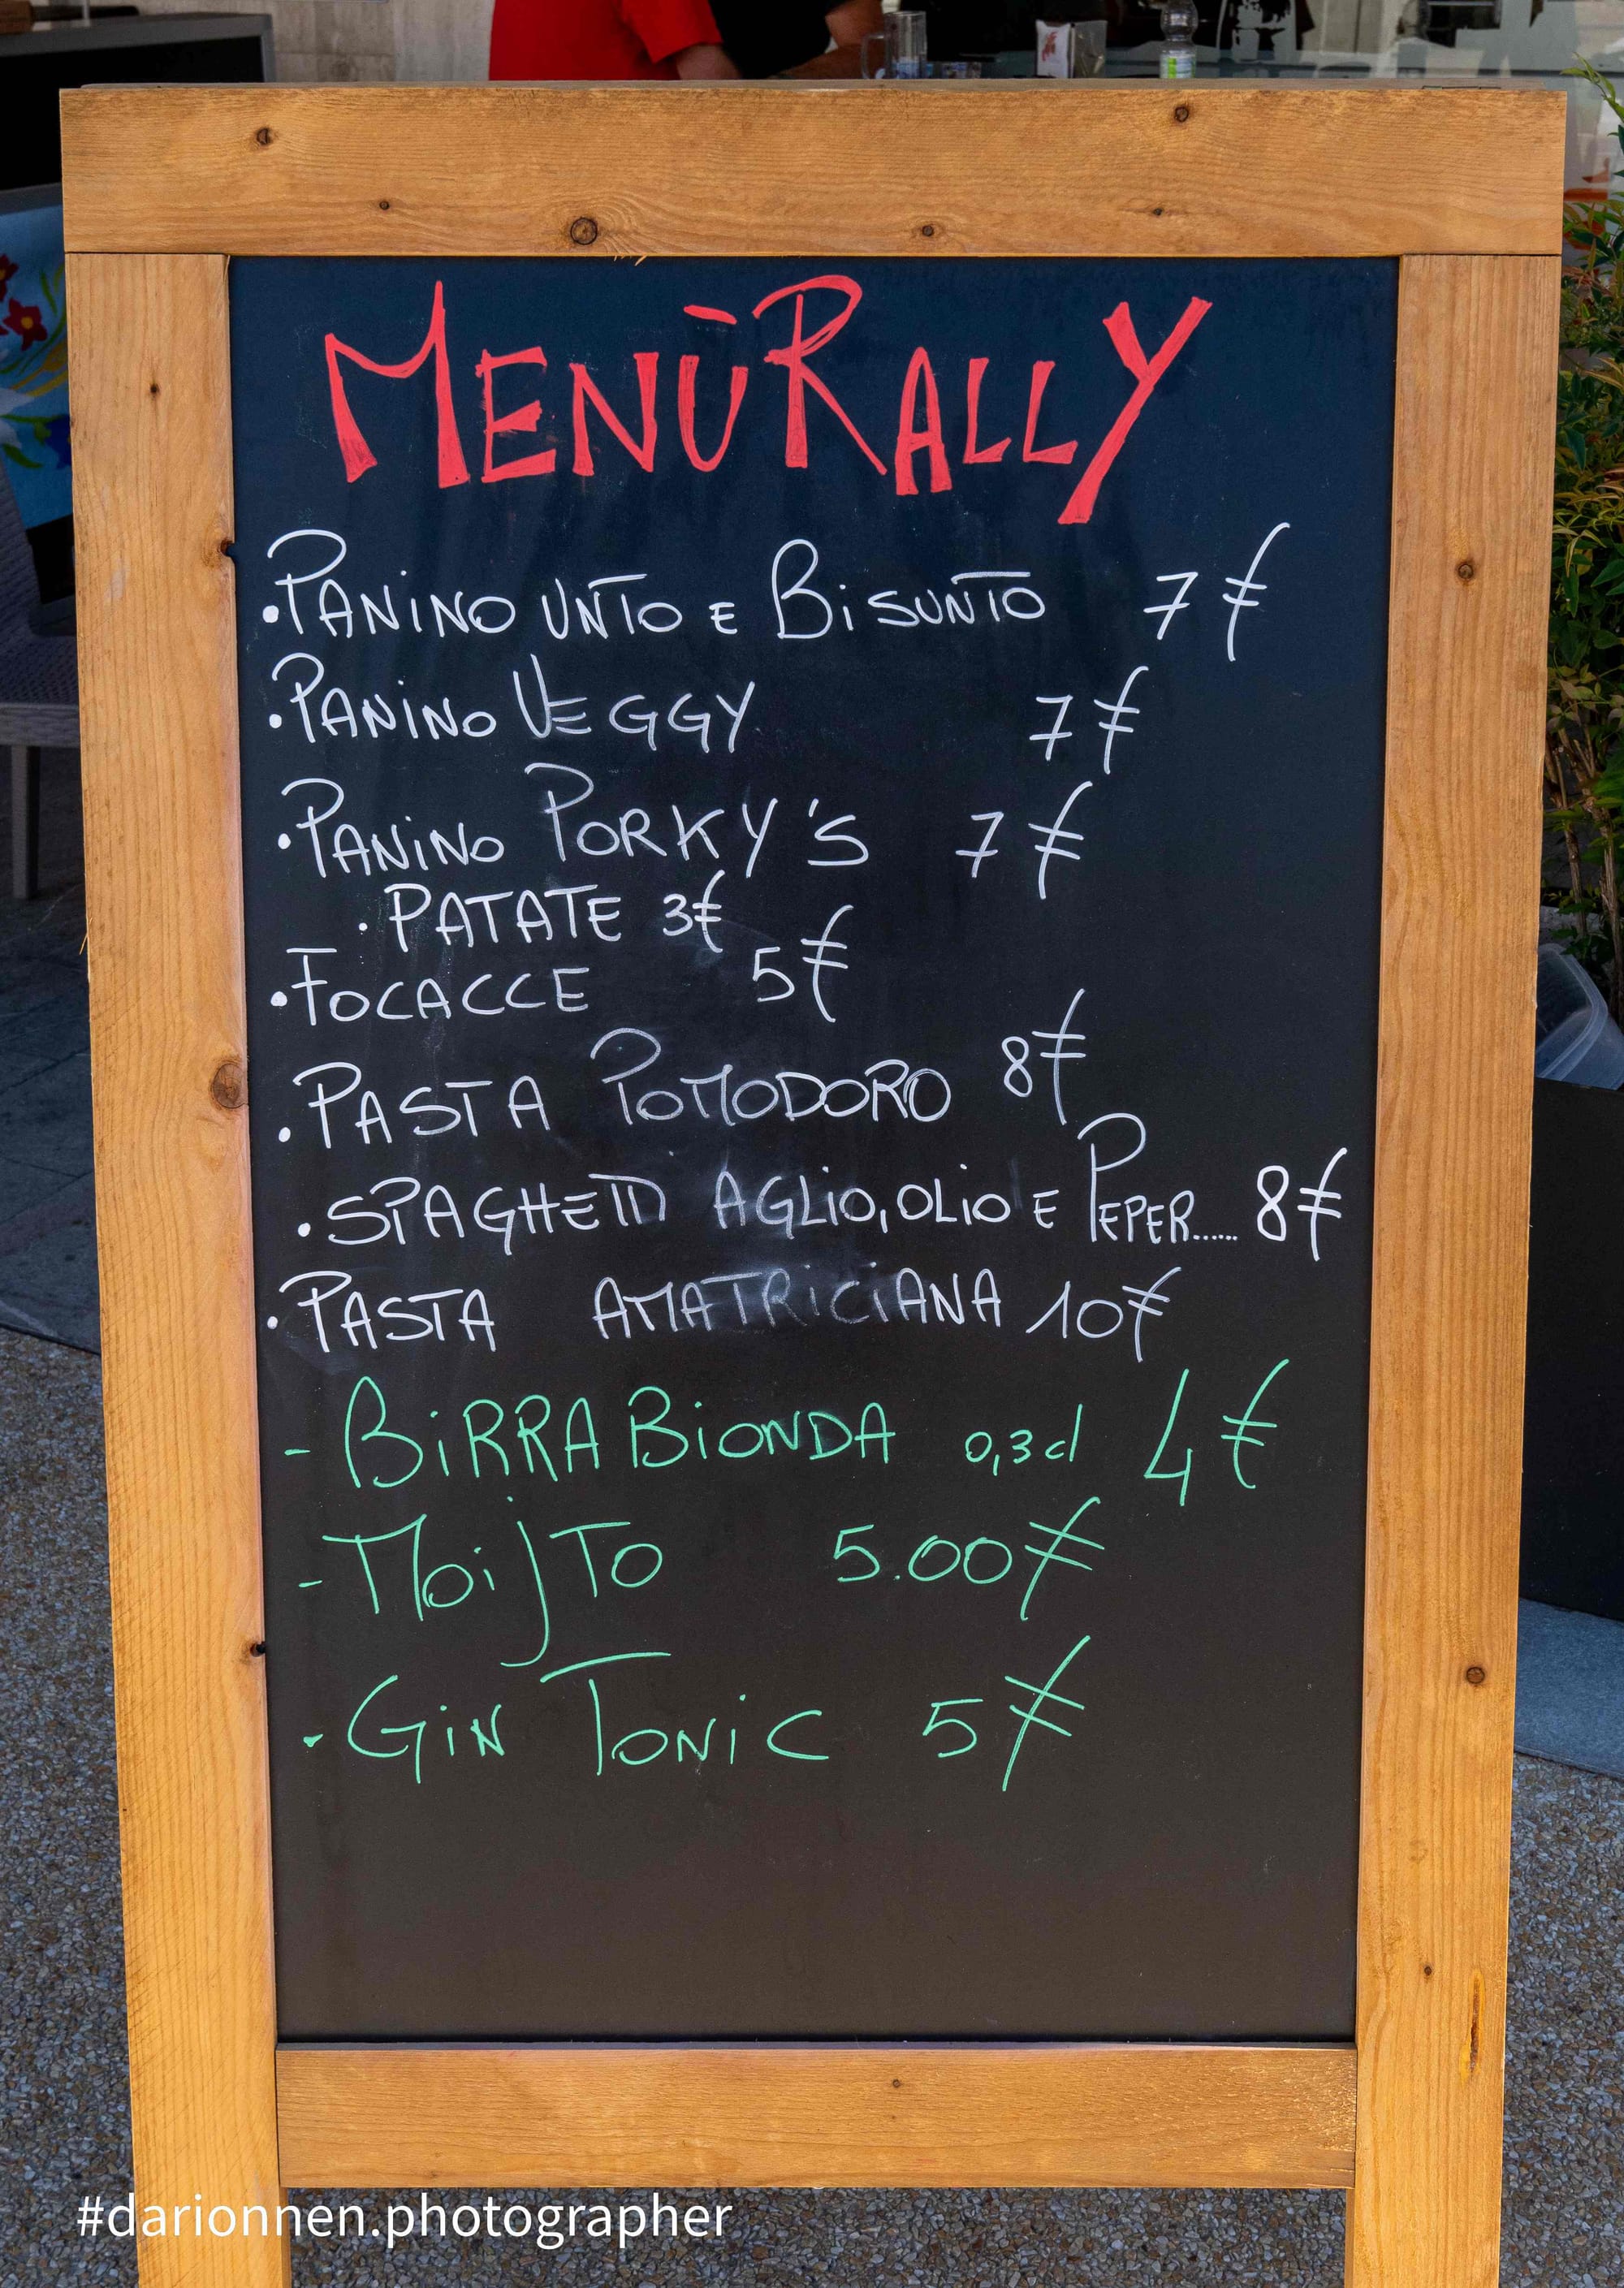 MENÙ RALLY
•PANINO UNTO E BISUNTO 7€
•PANINO VEGGY 7€
•PANINO PORKY'S 7€
•PATATE 3€
•FOCACCE 5€
•PASTA POMODORO 8€
•SPAGHETTI AGLIO, OLIO E PEPER...... 8€
•PASTA AMATRICIANA 10€
- BIRRA BIONDA 0,3 cl 4€
- MOIJTO 5.00€
- GIN TONIC 5€
#darionnen.photographer